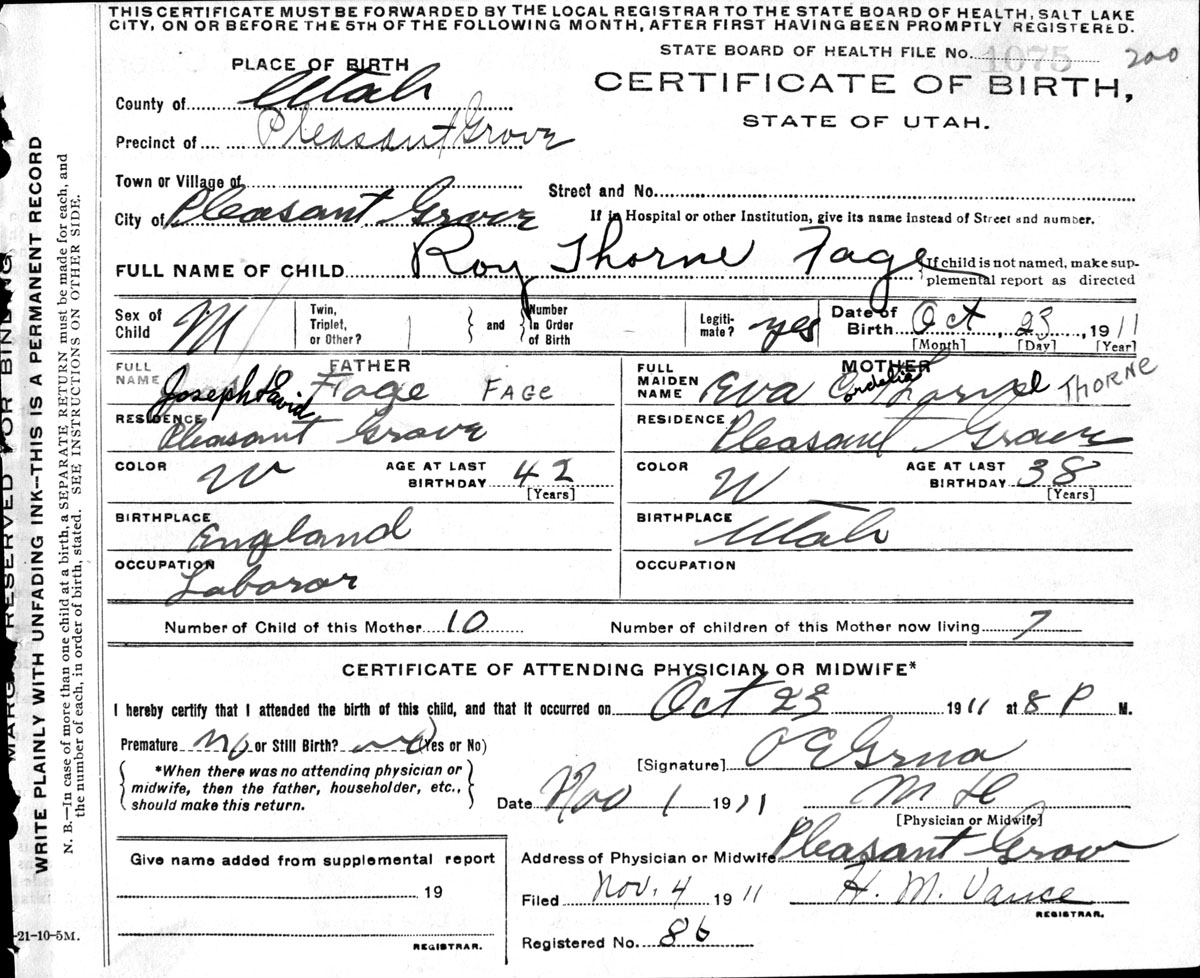 THIS CERTIFICATE MUST BE FORWARDED BY THE LOCAL REGISTRAR TO THE STATE BOARD OF HEALTH, SALT LAKE
CITY, ON OR BEFORE THE 5TH OF THE FOLLOWING MONTH, AFTER FIRST HAVING BEEN PROMPTLY REGISTERED.
STATE BOARD OF HEALTH FILE No. 1075 200
PLACE OF BIRTH
CERTIFICATE OF BIRTH,
County of Utah
STATE OF UTAH.
Precinct of Pleasant Grove
Town or Village of
Street and No.
City of Pleasant Grove
If in Hospital or other Institution, give its name instead of Street and number.
FULL NAME OF CHILD Roy Thorne Fage
If child is not named, make sup-
plemental report as directed
Sex of Child M
Twin, Triplet, or Other? and Number in Order of Birth
Legiti-mate? yes
Date of Birth Oct, 23, 1911
[Month] [Day] [Year]
FATHER
FULL NAME Joseph David Fage FAGE
RESIDENCE Pleasant Grove
COLOR W AGE AT LAST BIRTHDAY 42
[Years]
BIRTHPLACE England
OCCUPATION Laboror
MOTHER
FULL MAIDEN NAME Eva Cordelia THORNE
RESIDENCE Pleasant Grove
COLOR W AGE AT LAST BIRTHDAY 38
[Years]
BIRTHPLACE Utah
OCCUPATION
Number of Child of this Mother 10 Number of children of this Mother now living 7
CERTIFICATE OF ATTENDING PHYSICIAN OR MIDWIFE*
I hereby certify that I attended the birth of this child, and that it occurred on Oct 23 1911 at 8 P M.
Premature no or Still Birth? no (Yes or No)
[Signature]
*When there was no attending physician or
midwife, then the father, householder, etc.,
should make this return.
Date Nov 1 1911
[Physician or Midwife]
Give name added from supplemental report
19
REGISTRAR.
Address of Physician or Midwife Pleasant Grove
Filed Nov. 4 1911 H. M. Vance
REGISTRAR.
Registered No. 86
-21-10-5M.
MARGIN RESERVED FOR BINDING
WRITE PLAINLY WITH UNFADING INK—THIS IS A PERMANENT RECORD
N. B.—In case of more than one child at a birth, a SEPARATE RETURN must be made for each, and
the number of each, in order of birth, stated. SEE INSTRUCTIONS ON OTHER SIDE.